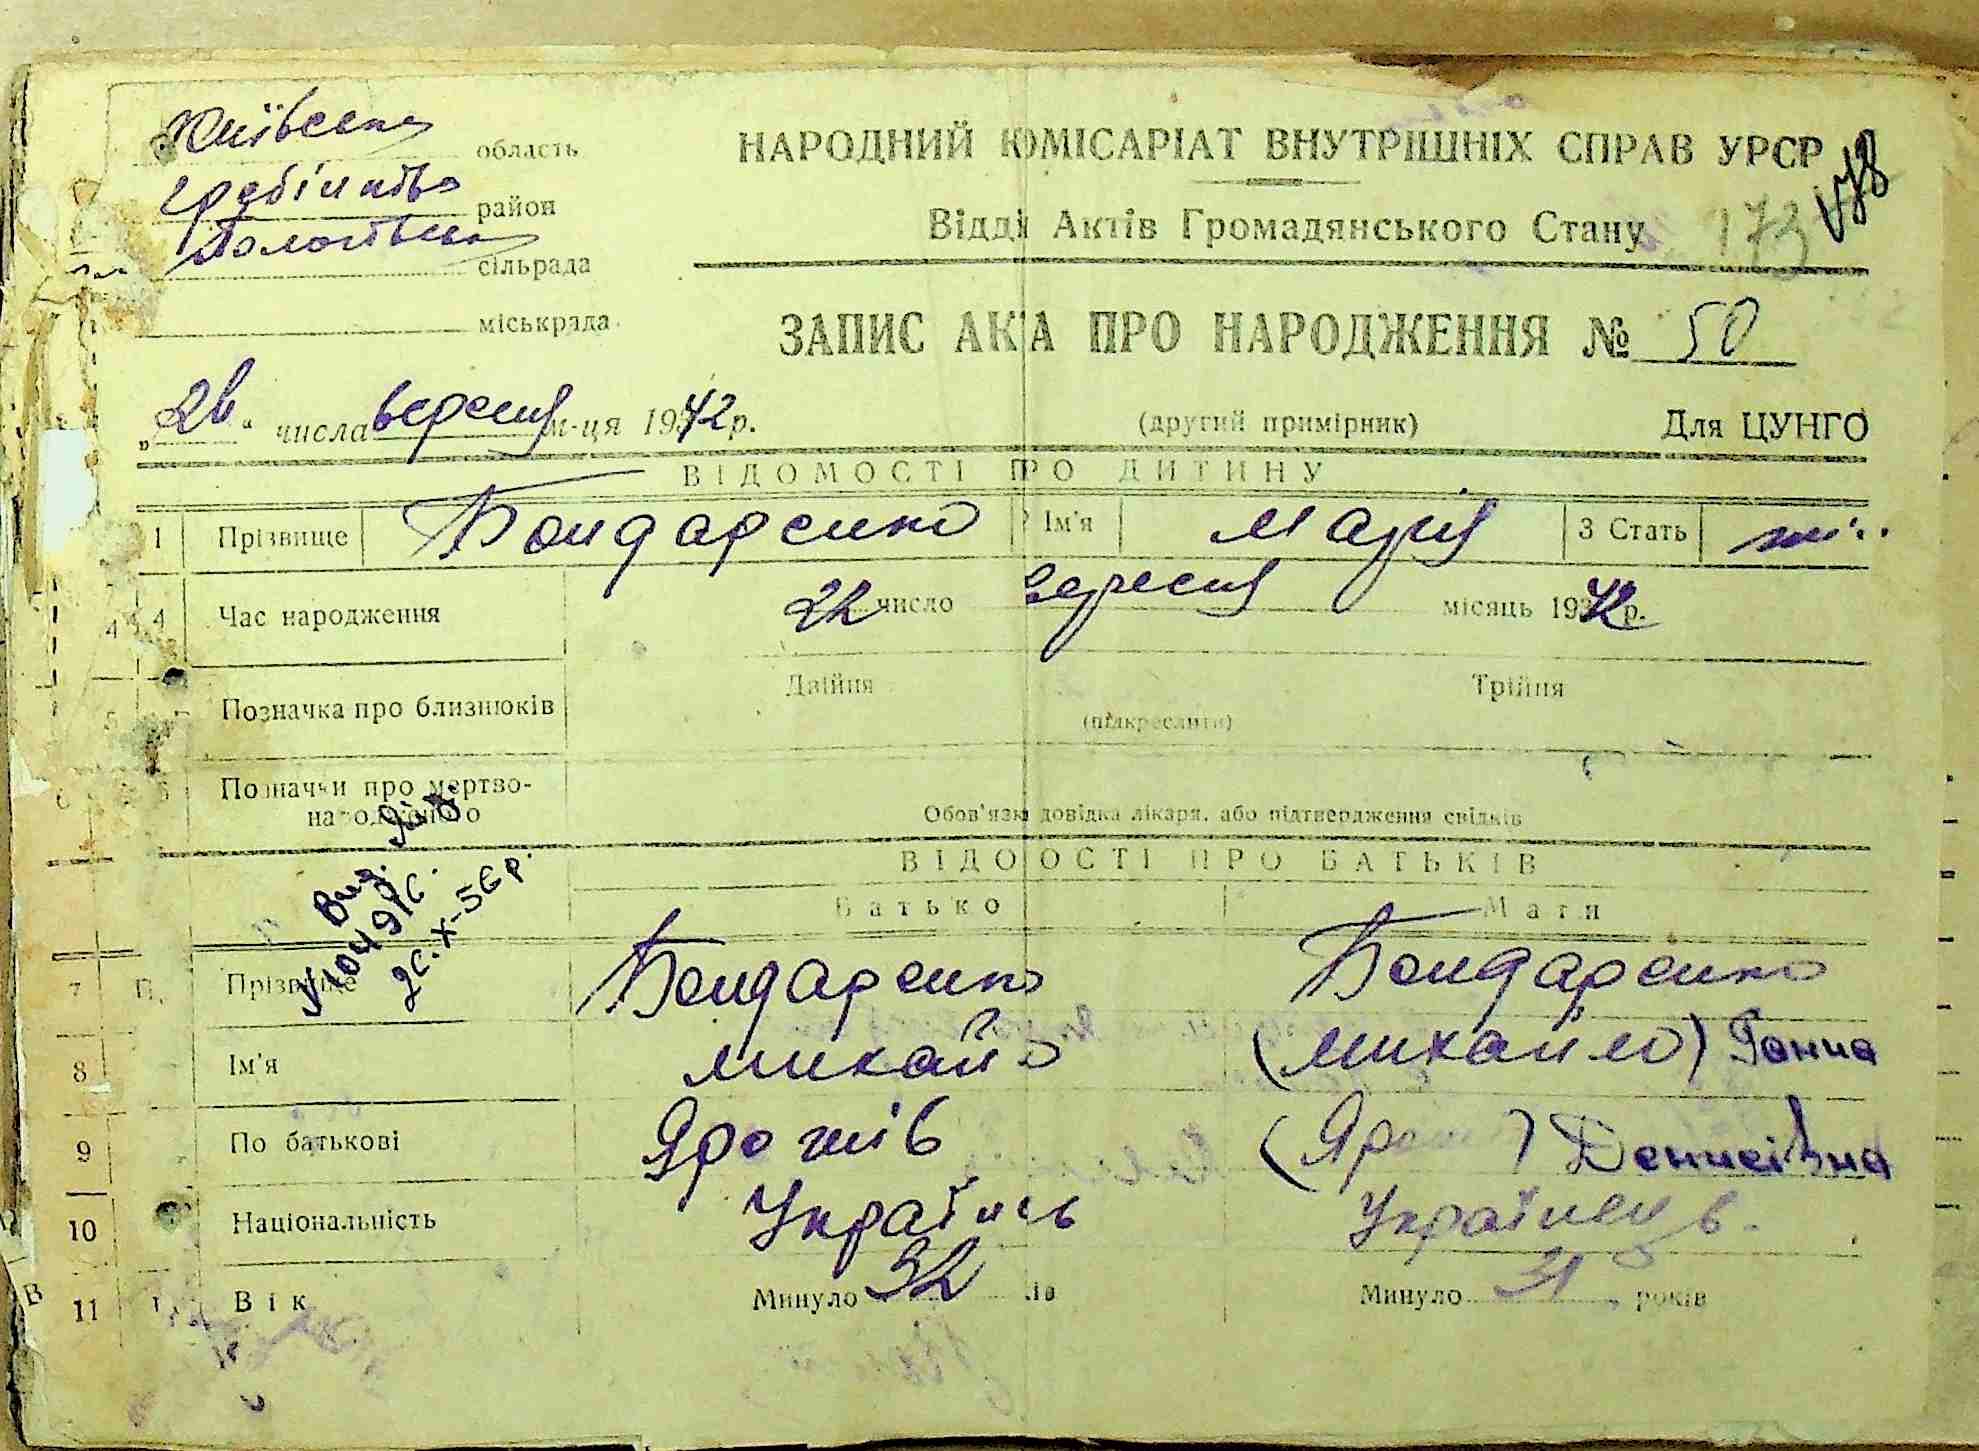 Київська область
район
сільрада
міськрада
НАРОДНИЙ КОМІСАРІАТ ВНУТРІШНІХ СПРАВ УРСР
Відділ Актів Громадянського Стану 173
ЗАПИС АКТА ПРО НАРОДЖЕННЯ № 50
числа вересня м-ця 1942 р.
(другий примірник) Для ЦУНГО
ВІДОМОСТІ ПРО ДИТИНУ
1 Прізвище Бондаренко 2 Ім'я Марія 3 Стать
4 Час народження 22 число вересня місяць 1942 р.
5 Позначка про близнюків Двійня Трійня
(підкреслити)
6 Позначки про мертво-
народженого Обов'язк довідка лікаря, або підтвердження свідків
ВІДОМОСТІ ПРО БАТЬКІВ
Батько Мати
7 Прізвище Бондаренко Бондаренко
8 Ім'я Михайло (Михайло) Ганна
9 По батькові Денисівна
10 Національність Українець Українець
11 Вік Минуло 32 ів Минуло 31 років